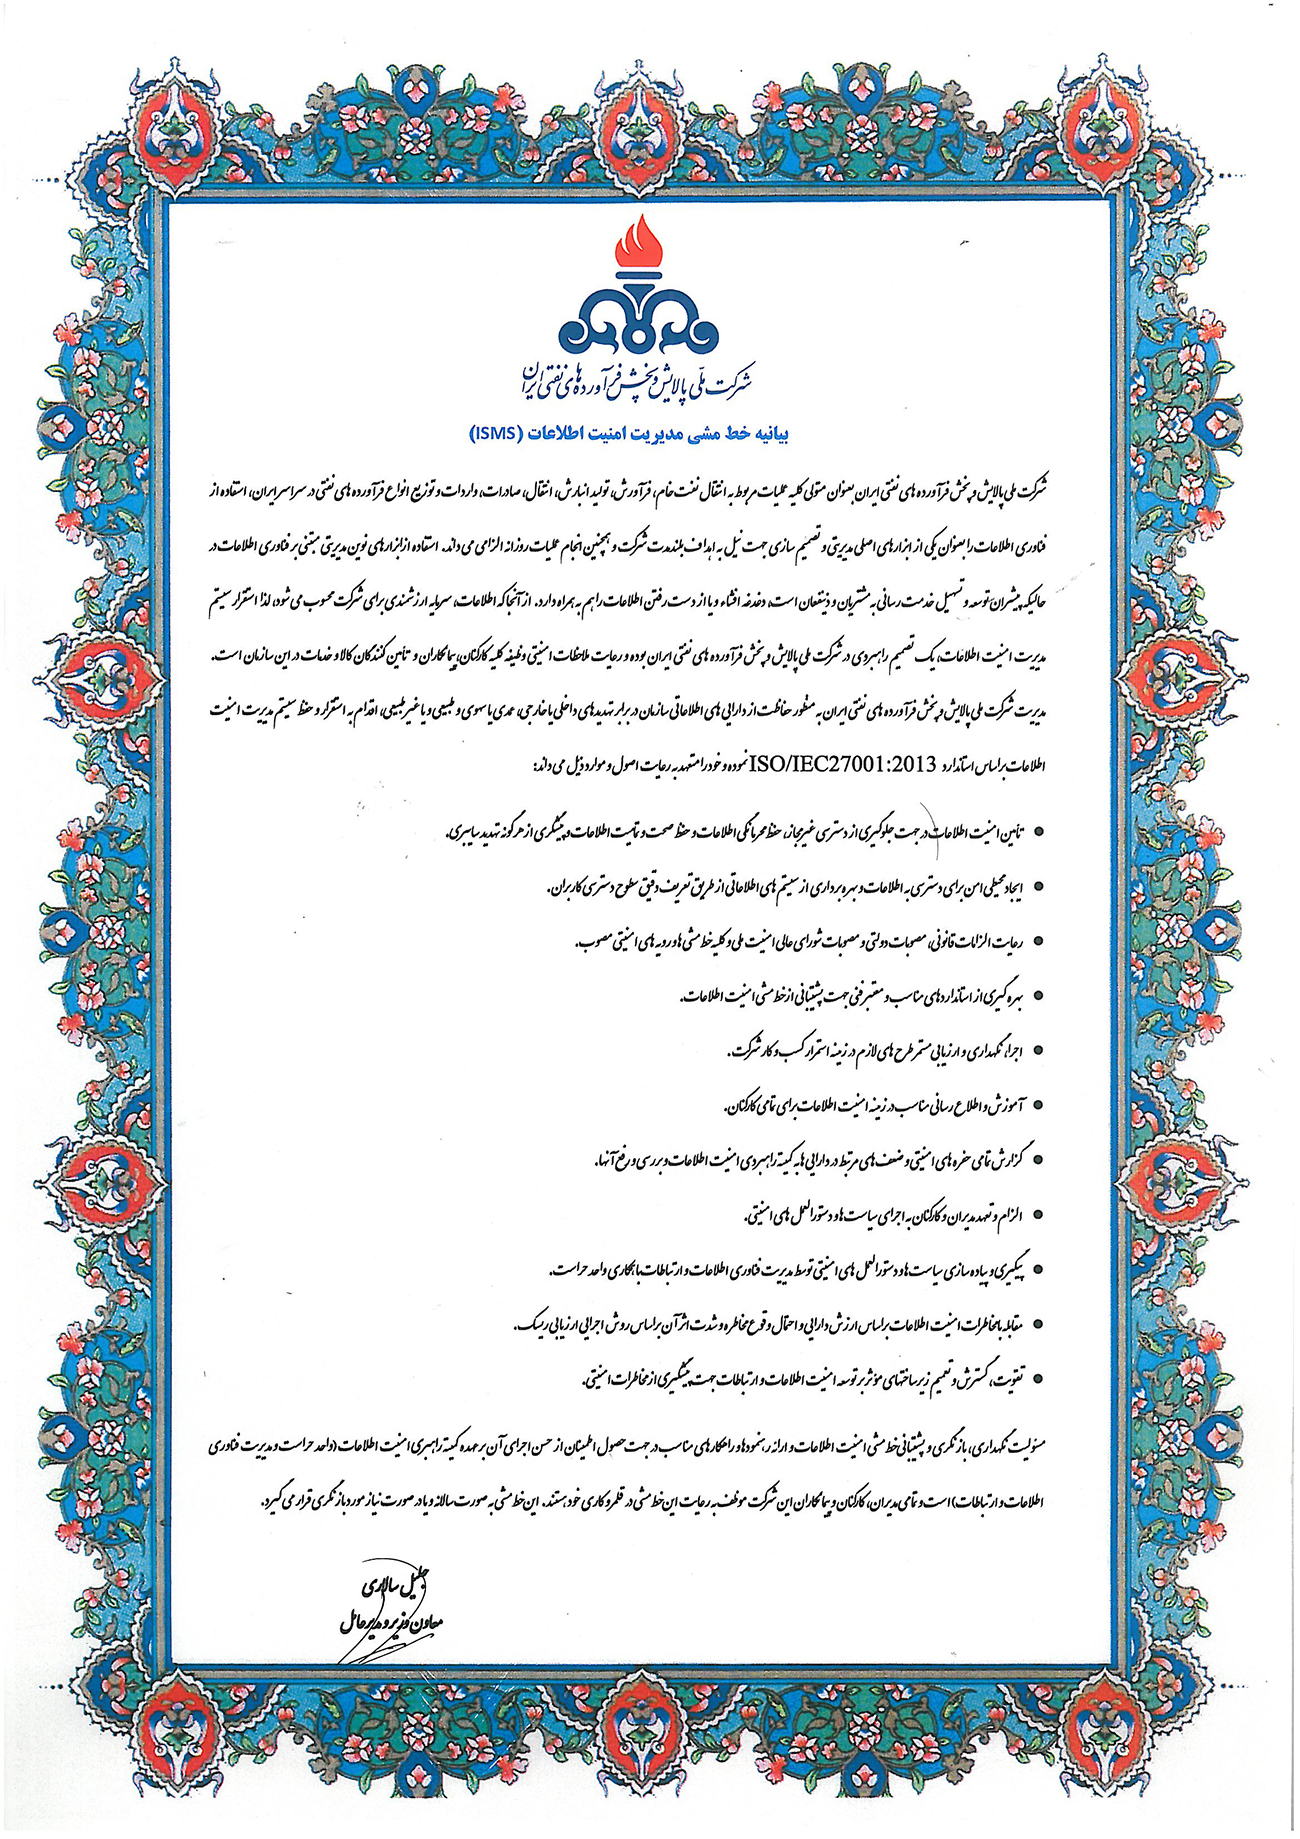 شرکت ملی پالایش و پخش فرآورده های نفتی ایران
بیانیه خط مشی مدیریت امنیت اطلاعات (ISMS)
شرکت ملی پالایش و پخش فرآورده های نفتی ایران بعنوان متولی کلیه عملیات مربوط به انتقال نفت خام، فرآورش، تولید، انبارش، انتقال، صادرات، واردات و توزیع انواع فرآورده های نفتی در سراسر ایران، استفاده از
فناوری اطلاعات را بعنوان یکی از ابزارهای اصلی مدیریتی و تصمیم سازی جهت نیل به اهداف بلندمدت شرکت و همچنین انجام عملیات روزانه الزامی می داند. استفاده از ابزارهای نوین مدیریتی مبتنی بر فناوری اطلاعات در
حالیکه پیشران توسعه و تسهیل خدمت رسانی به مشتریان و ذینفعان است، دغدغه افشاء و یا از دست رفتن اطلاعات را هم به همراه دارد. از آنجا که اطلاعات، سرمایه ارزشمندی برای شرکت محسوب می شود، لذا استقرار سیستم
مدیریت امنیت اطلاعات، یک تصمیم راهبردی در شرکت ملی پالایش و پخش فرآورده های نفتی ایران بوده و رعایت ملاحظات امنیتی وظیفه کلیه کارکنان، پیمانکاران و تأمین کنندگان کالا و خدمات در این سازمان است.
مدیریت شرکت ملی پالایش و پخش فرآورده های نفتی ایران به منظور حفاظت از دارایی های اطلاعاتی سازمان در برابر تهدیدهای داخلی یا خارجی، عمدی یا سهوی و طبیعی و یا غیر طبیعی، اقدام به استقرار و حفظ سیستم مدیریت امنیت
اطلاعات بر اساس استاندارد ISO/IEC27001:2013 نموده و خود را متعهد به رعایت اصول و موارد ذیل می داند:
● تأمین امنیت اطلاعات در جهت جلوگیری از دسترسی غیرمجاز، حفظ محرمانگی اطلاعات و حفظ صحت و تمامیت اطلاعات و پیشگیری از هرگونه تهدید سایبری.
● ایجاد محیطی امن برای دسترسی به اطلاعات و بهره برداری از سیستم های اطلاعاتی از طریق تعریف دقیق سطوح دسترسی کاربران.
● رعایت الزامات قانونی، مصوبات دولتی و مصوبات شورای عالی امنیت ملی و کلیه خط مشی ها و رویه های امنیتی مصوب.
● بهره گیری از استانداردهای مناسب و معتبر فنی جهت پشتیبانی از خط مشی امنیت اطلاعات.
● اجرا، نگهداری و ارزیابی مستمر طرح های لازم در زمینه استمرار کسب و کار شرکت.
● آموزش و اطلاع رسانی مناسب در زمینه امنیت اطلاعات برای تمامی کارکنان.
● گزارش تمامی حفره های امنیتی و ضعف های مرتبط در دارایی ها به کمیته راهبردی امنیت اطلاعات و بررسی و رفع آنها.
● الزام و تعهد مدیران و کارکنان به اجرای سیاست ها و دستورالعمل های امنیتی.
● پیگیری و پیاده سازی سیاست ها و دستورالعمل های امنیتی توسط مدیریت فناوری اطلاعات و ارتباطات با همکاری واحد حراست.
● مقابله با مخاطرات امنیت اطلاعات بر اساس ارزش دارایی و احتمال وقوع مخاطره و شدت اثر آن بر اساس روش اجرایی ارزیابی ریسک.
● تقویت، گسترش و تعمیم زیرساختهای مؤثر بر توسعه امنیت اطلاعات و ارتباطات جهت پیشگیری از مخاطرات امنیتی.
مسئولیت نگهداری، بازنگری و پشتیبانی خط مشی امنیت اطلاعات و ارائه رهنمودها و راهکارهای مناسب در جهت حصول اطمینان از حسن اجرای آن بر عهده کمیته راهبری امنیت اطلاعات (واحد حراست و مدیریت فناوری
اطلاعات و ارتباطات) است و تمامی مدیران، کارکنان و پیمانکاران این شرکت موظف به رعایت این خط مشی در قلمرو کاری خود هستند. این خط مشی به صورت سالانه و یا در صورت نیاز مورد بازنگری قرار می گیرد.
جلیل سالاری
معاون وزیر و مدیرعامل